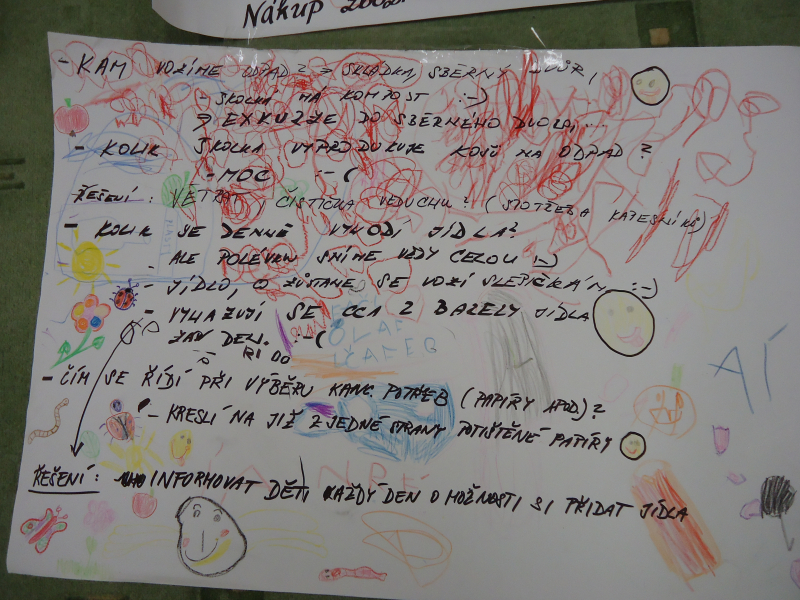 Nákup
- KAM VOZÍME ODPAD? → SKLÁDKA, SBĚRNÝ DVŮR,
- ŠKOLKA MÁ KOMPOST :-)
→ EXKURZE DO SBĚRNÉHO DVORA...
- KOLIK ŠKOLKA VYPRODUKUJE KOŠŮ NA ODPAD?
- MOC :-(
ŘEŠENÍ: VĚTRAT, ČISTIČKA VZDUCHU? (SPOTŘEBA KAPESNÍKŮ)
- KOLIK SE DENNĚ VYHODÍ JÍDLA?
- ALE POLÉVKU SNÍME VŽDY CELOU :-)
- JÍDLO, CO ZŮSTANE, SE VOZÍ SLEPIČKÁM :-)
- VYHAZUJÍ SE CCA 2 BAZELY JÍDLA
ZA DEN. :-(
- ČÍM SE ŘÍDÍ PŘI VÝBĚRU KANC. POTŘEB (PAPÍRY APOD)?
- KRESLÍ NA JIŽ Z JEDNÉ STRANY POTIŠTĚNÉ PAPÍRY
ŘEŠENÍ: INFORMOVAT DĚTI KAŽDÝ DEN O MOŽNOSTI SI PŘIDAT JÍDLA